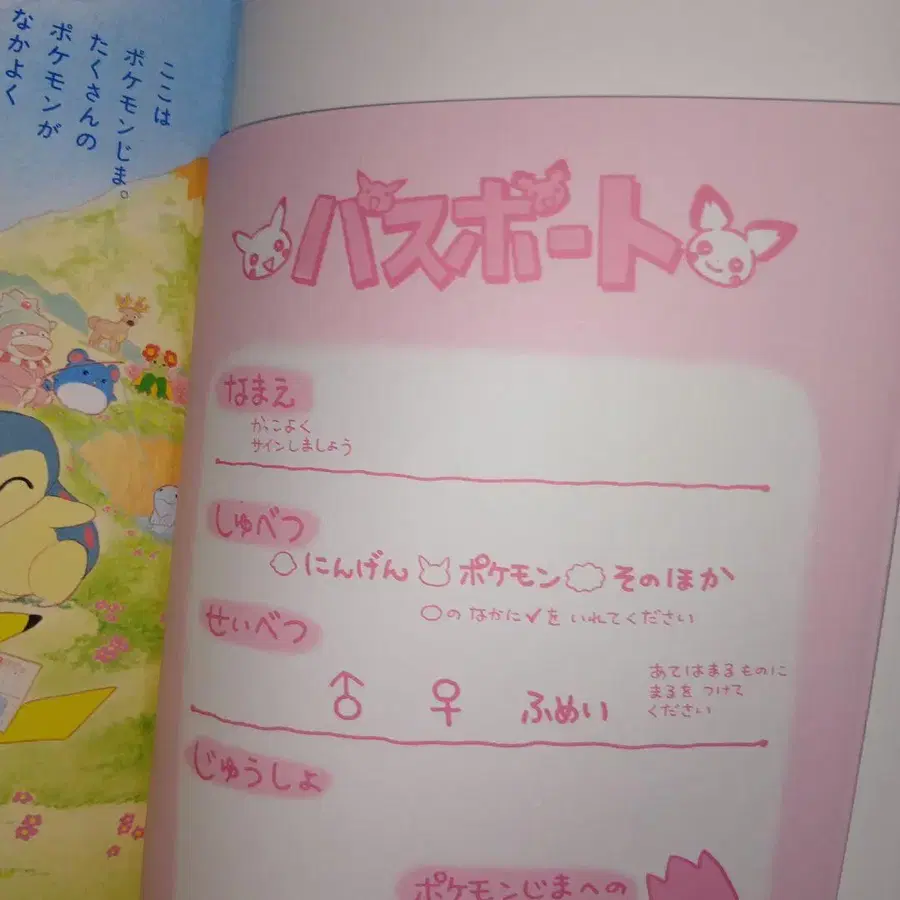 ここは
ポケモンじま。
たくさんの
ポケモンが
なかよく
パスポート
なまえ
かっこよく
サインしましょう
しゅべつ
にんげん ポケモン そのほか
○の なかに✓を いれてください
せいべつ
♂ ♀ ふめい
あてはまるものに
まるを つけて
ください
じゅうしょ
ポケモンじまへの